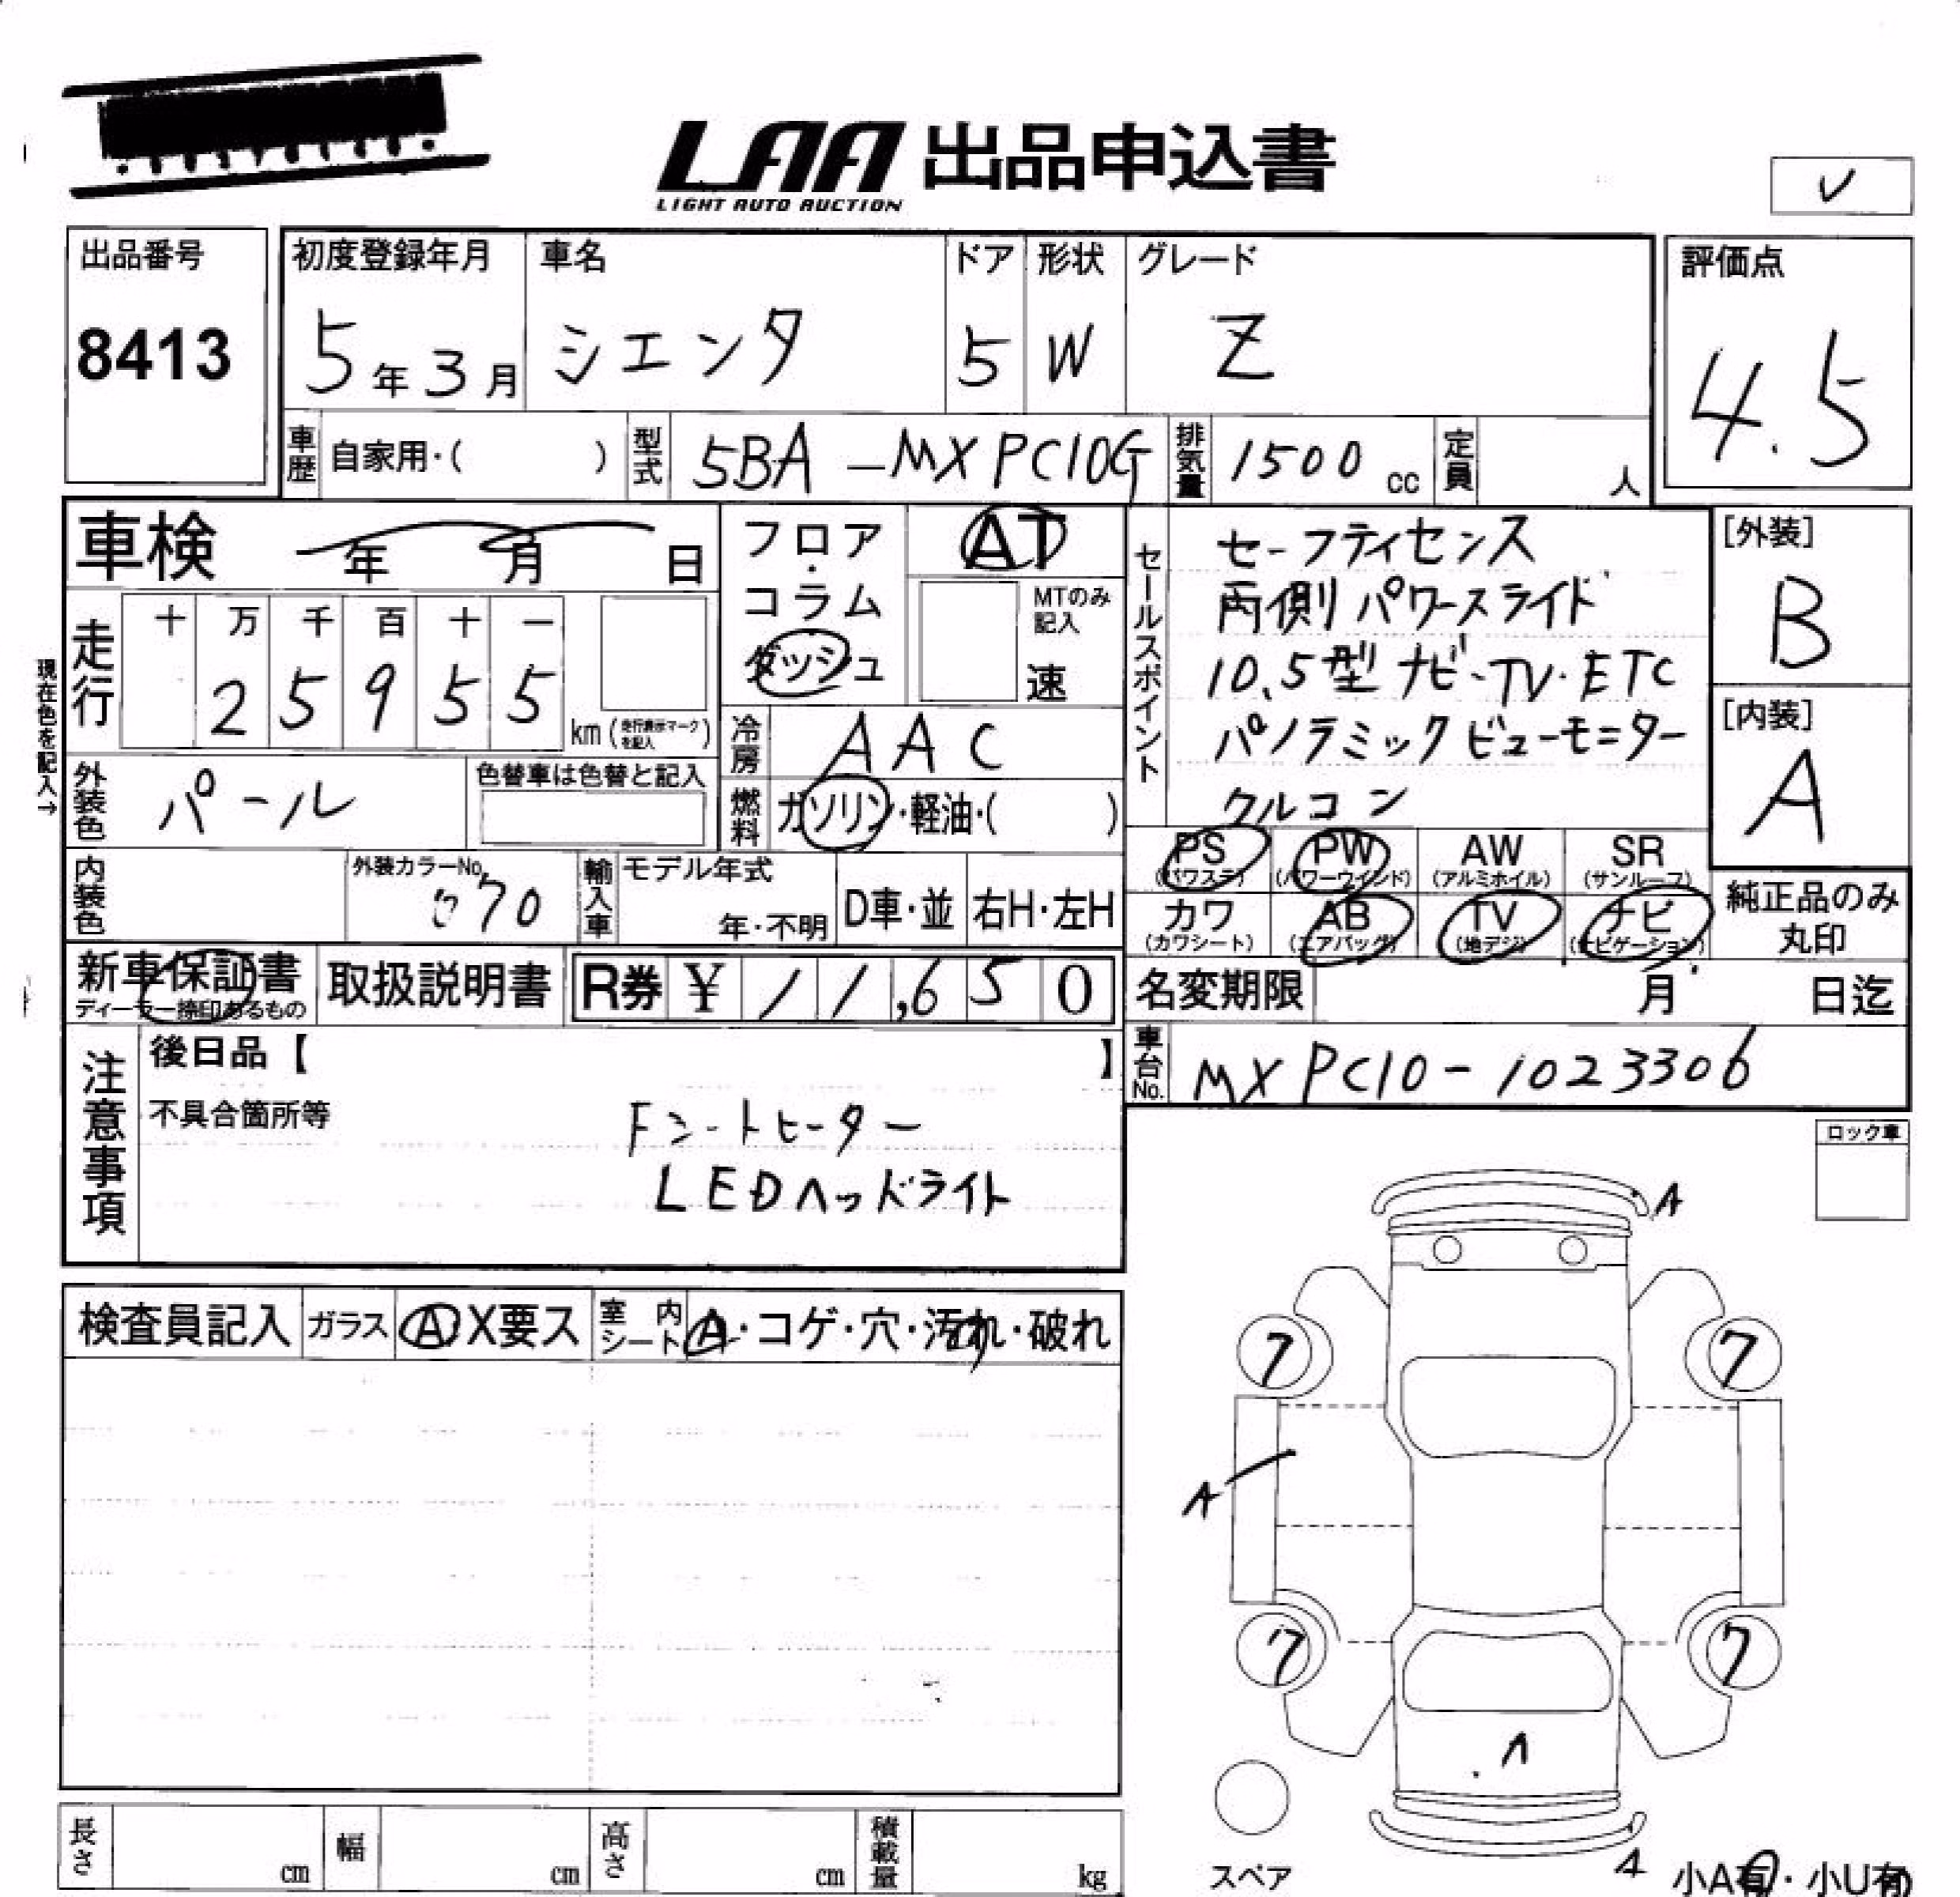 LAA 出品申込書
LIGHT AUTO AUCTION
出品番号
8413
初度登録年月
5年3月
車名
シエンタ
ドア
5
形状
W
グレード
Z
評価点
4.5
車歴 自家用・( )
型式 5BA-MXPC10G
排気量 1500 cc
定員 人
車検 年 月 日
現在色を記入→
走行
十 万 千 百 十 一
2 5 9 5 5
km (走行表示マークを記入)
フロア・コラム
ダッシュ
AT
MTのみ記入
速
冷房 AAC
燃料 ガソリン・軽油・( )
外装色 パール
色替車は色替と記入
内装色
外装カラーNo.
070
輸入車
モデル年式
年・不明
D車・並
右H・左H
セールスポイント
セーフティセンス
両側パワースライド
10.5型ナビ・TV・ETC
パノラミックビューモニター
クルコン
[外装]
B
[内装]
A
PS (パワステ)
PW (パワーウインド)
AW (アルミホイル)
SR (サンルーフ)
カワ (カワシート)
AB (エアバッグ)
TV (地デジ)
ナビ (ナビゲーション)
純正品のみ
丸印
新車保証書
ディーラー捺印あるもの
取扱説明書
R券 ¥ 11,650
名変期限 月 日迄
車台No. MXPC10-1023306
注意事項
後日品【 】
不具合箇所等
Fシートヒーター
LEDヘッドライト
ロック車
A
検査員記入
ガラス
A X要ス
室内シート
A・コゲ・穴・汚れ・破れ
7
7
A
7
7
A
A
スペア
小A有・小U有
長さ cm
幅 cm
高さ cm
積載量 kg